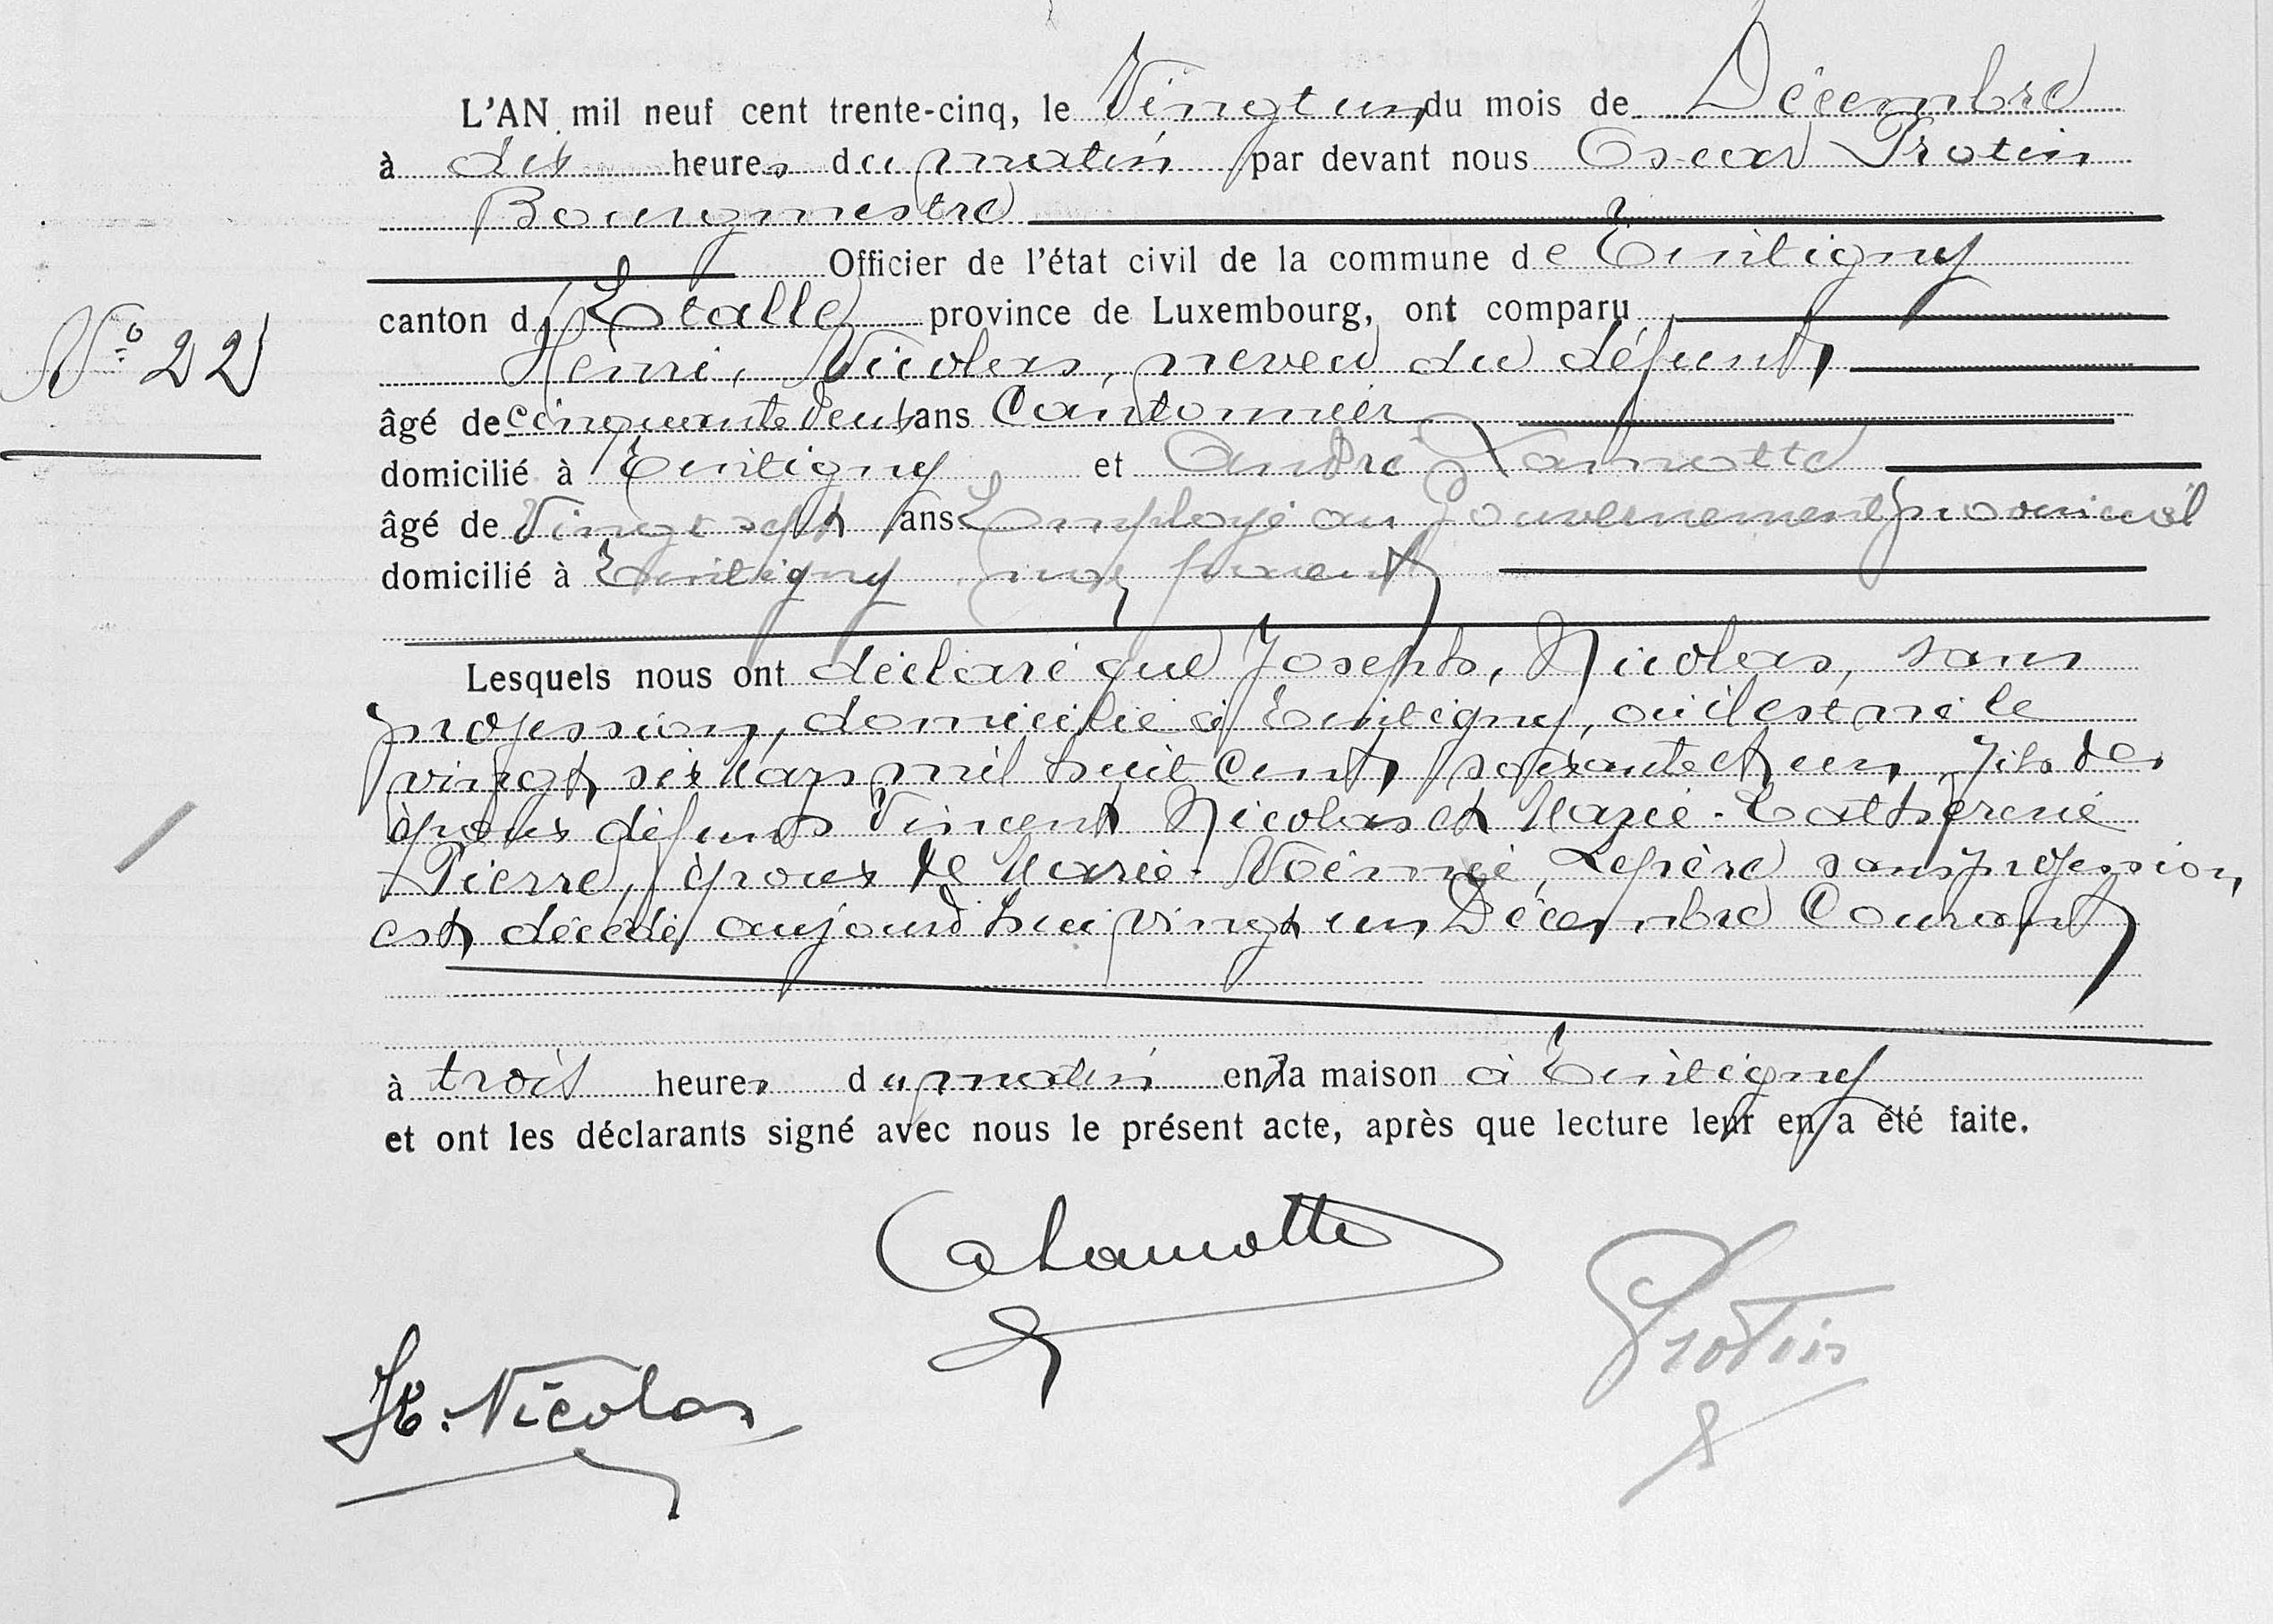 L'AN mil neuf cent trente-cinq, le Vingt un du mois de Décembre
à dix heures du matin par devant nous Oscar Protin
Bourgmestre
Officier de l'état civil de la commune de Tintigny
canton d'Etalle province de Luxembourg, ont comparu
N° 22
Henri, Nicolas, neveu du défunt,
âgé de cinquante deux ans Cantonnier
domicilié à Tintigny et André Lamotte
âgé de Vingt sept ans Employé au Gouvernement provincial
domicilié à Tintigny non parent
Lesquels nous ont déclaré que Joseph, Nicolas, sans
profession, domicilié à Tintigny, où il est né le
vingt six Mars mil huit cent soixante et un, fils des
époux défunts Vincent Nicolas et Marie-Catherine
Pierre, époux de Marie-Noémie, Lepère sans profession,
est décédé aujourd'hui vingt un Décembre Courant
à trois heures du matin en sa maison à Tintigny
et ont les déclarants signé avec nous le présent acte, après que lecture leur en a été faite.
A Lamotte
Protin
H. Nicolas